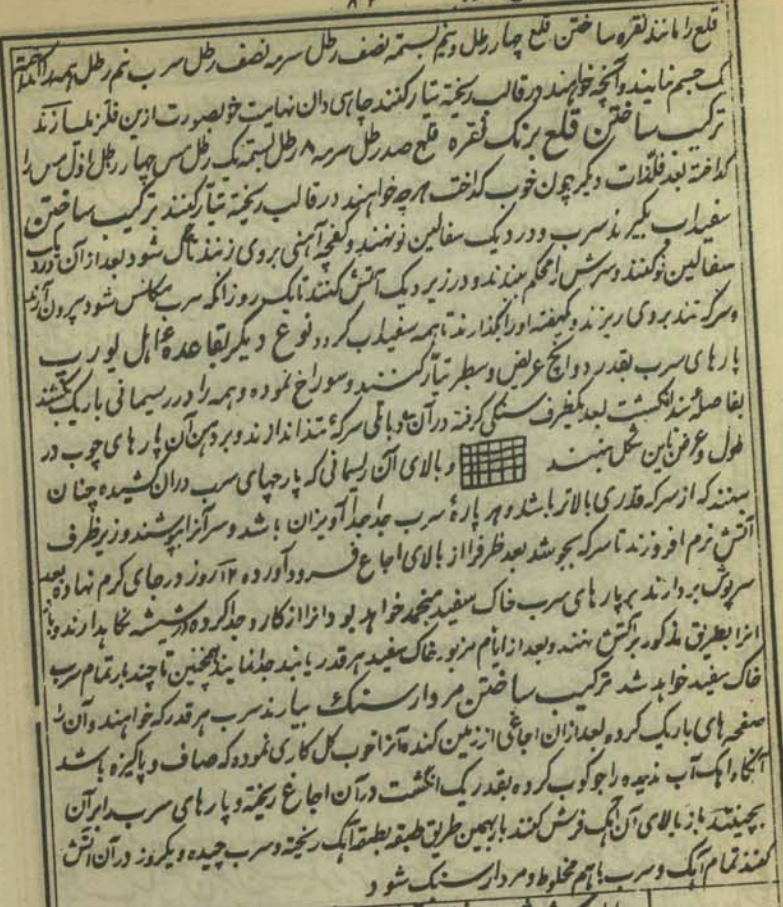 قلع را مانند نقره ساختن قلع چهار رطل و نیم بستمه نصف رطل سرمه نصف رطل سرب نیم رطل همه را
یک جسم نمایند و آنچه خواهند در قالب ریخته تیار کنند چاهی دان نهایت خوبصورت ازین فلز میسازند
ترکیب ساختن قلع برنگ نقره قلع صد رطل سرمه ۸ رطل بستمه یک رطل مس چهار رطل اول مس را
گداخته بعد فلذات دیگر چون خوب گداخت هرچه خواهند در قالب ریخته تیار کنند ترکیب ساختن
سفیداب بگیرند سرب و در دیک سفالین نو نهند و کفچه آهنی بروی زنند تا گل شود بعد از آن در دیک
سفالین نو کنند و سرش را محکم ببندند و در زیر دیک آتش کنند تا یک روز آنکه سرب مکلس شود بیرون آرند
و سرکه تند بروی ریزند و یکهفته او را بگذارند تا همه سفیداب گردد نوع دیگر بقاعده اهل یورپ
پارهای سرب بقدر دو انچ عریض و سطبر تیار کنند و سوراخ نموده و همه را در ریسمانی باریک کشند
بفاصله سه انگشت بعد یکظرف سنگی گرفته در آن دو باملی سرکهٔ تند اندازند و بر دهن آن پارهای چوب در
طول و عرض باین شکل نهند و بالای آن ریسمانی که پارچهای سرب دران کشیده چنان
ببندند که از سرکه قدری بالاتر باشد و هر پارهٔ سرب جدا جدا آویزان باشد و سر آنرا بپوشند و زیر ظرف
آتش نرم افروزند تا سرکه بجوشد بعد ظرف را از بالای اجاغ فرود آورده ۱۲ روز در جای گرم نهاده بعد
سرپوش بردارند بر پارهای سرب خاک سفید منجمد خواهد بود آنرا از کارد جدا کرده در شیشه نگاهدارند و باز
آنرا بطریق مذکور بر آتش نهند و بعد از ایام مزبور خاک سفید هر قدر یابند جدا نمایند همچنین تا چند بار تمام سرب
خاک سفید خواهد شد ترکیب ساختن مردارسنک بیارند سرب هر قدر که خواهند و آن را
صفحه های باریک کرده بعد ازان اجاغی از زمین کنده آنرا خوب گل کاری نموده که صاف و پاکیزه باشد
آنگاه اهک آب ندیده را جو کوب کرده بقدر یک انگشت در آن اجاغ ریخته و پارهای سرب برابر آن
بچینند باز بالای آن آهک فرش کنند بهمین طریق طبقه بطبقه آهک ریخته و سرب چیده و یکروز در آن آتش
کنند تمام آهک و سرب باهم مخلوط و مردارسنک شود